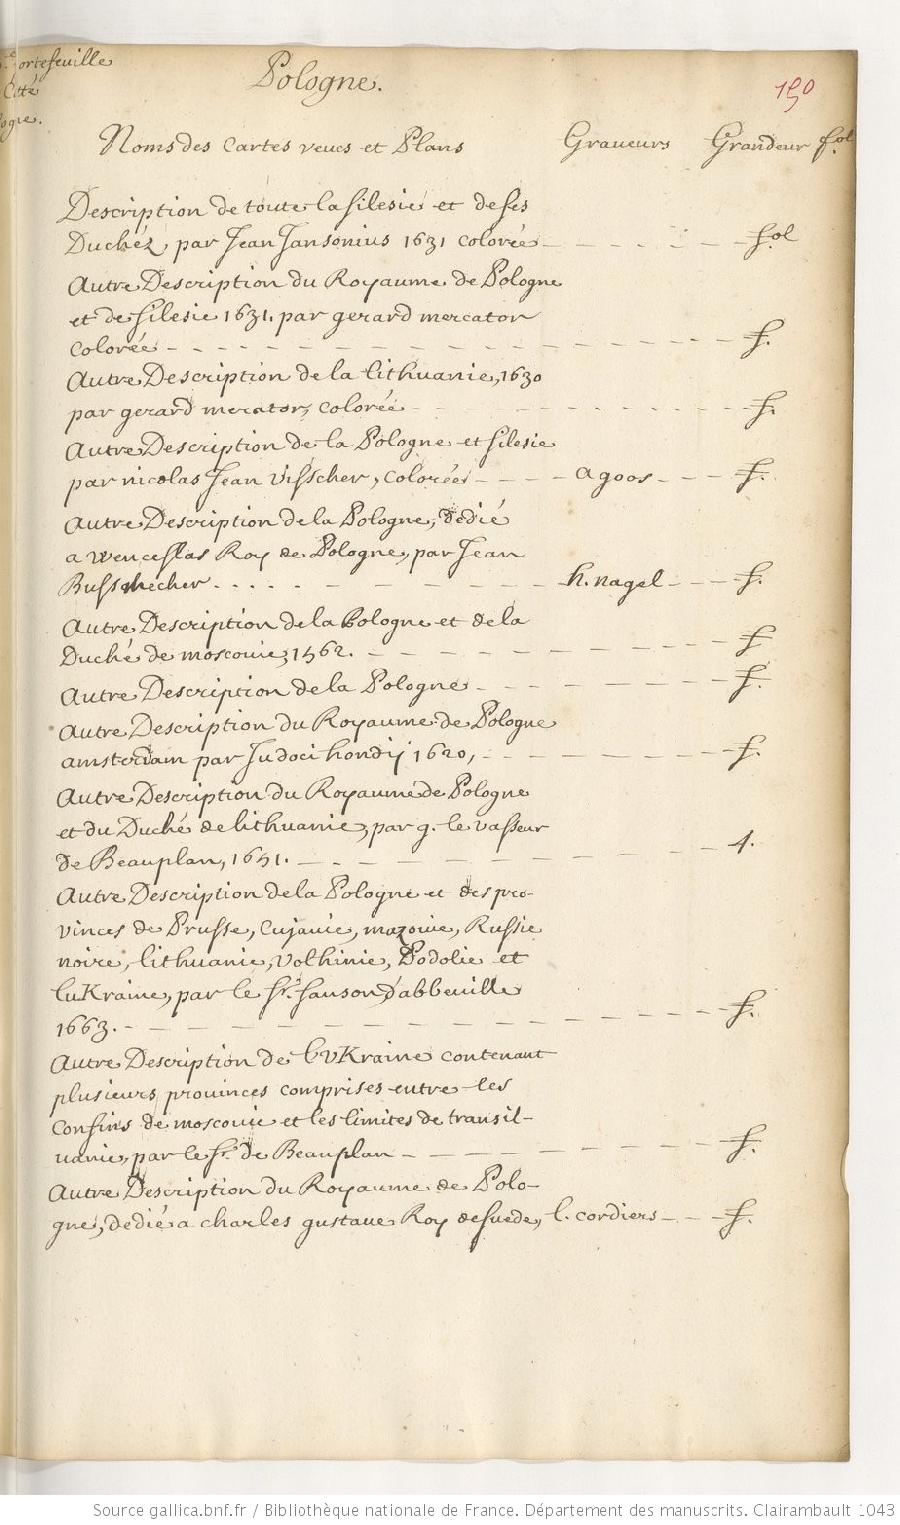 ortefeuille
Cotté
ogne.
Pologne.
150
Noms des Cartes veues et Plans Graveurs Grandeur fol
Description de toute la Silesie et de ses
Duchéz par Jean Jansonius 1631 colorée fol
Autre Description du Royaume de Pologne
et de Silesie 1631. par gerard mercator
colorée f.
Autre Description de la lithuanie, 1630
par gerard mercator, colorée f.
Autre Description de la Pologne et Silesie
par nicolas Jean Visscher, colorée a goos f.
Autre Description de la Pologne, dedié
a Wenceslas Roy de Pologne, par Jean
Bussmecher h. nagel f.
Autre Description de la Pologne et de la
Duché de moscovie, 1562. f
Autre Description de la Pologne f.
Autre Description du Royaume de Pologne
amsterdam par Judoci hondij 1620, f.
Autre Description du Royaume de Pologne
et du Duché de lithuanie, par g. le vasseur
de Beauplan, 1651. 4.
Autre Description de la Pologne et des pro-
vinces de Prusse, Cujavie, mazovie, Russie
noire, lithuanie, Volhinie, Podolie et
luKraine, par le Sr. Sanson d'abbeville
1663. f.
Autre Description de lvKraine contenant
plusieurs provinces comprises entre les
Confins de moscovie et les limites de transil-
vanie, par le Sr. de Beauplan f.
Autre Description du Royaume de Polo-
gne, dedié a charles gustave Roy de suede, l. cordiers f.
Source gallica.bnf.fr / Bibliothèque nationale de France. Département des manuscrits. Clairambault 1043